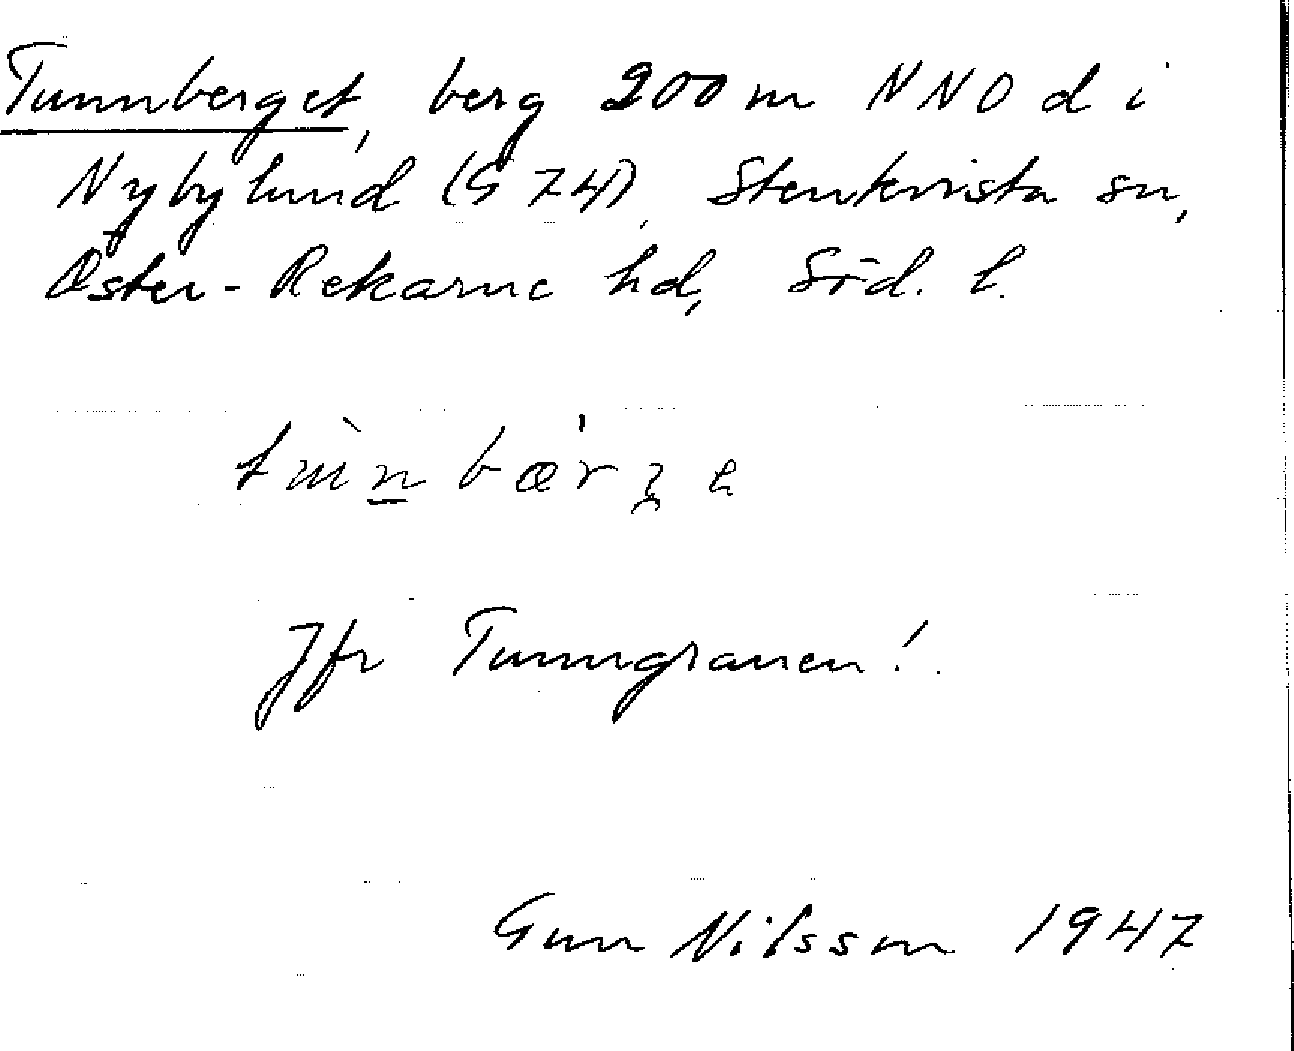 Tunnberget, berg 200 m NNO d i
Nybylund (G 74), Stenkvista sn,
Öster-Rekarne hd, Söd. l.
Jfr Tunngranen!
Gun Nilsson 1947